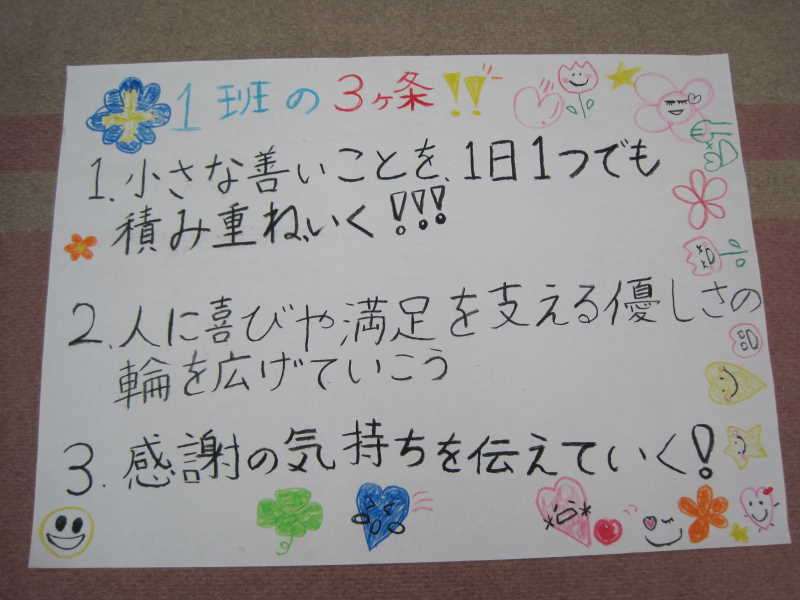 1班の3ヶ条!!
1.小さな善いことを、1日1つでも
積み重ねいく!!!
2.人に喜びや満足を支える優しさの
輪を広げていこう
3.感謝の気持ちを伝えていく!